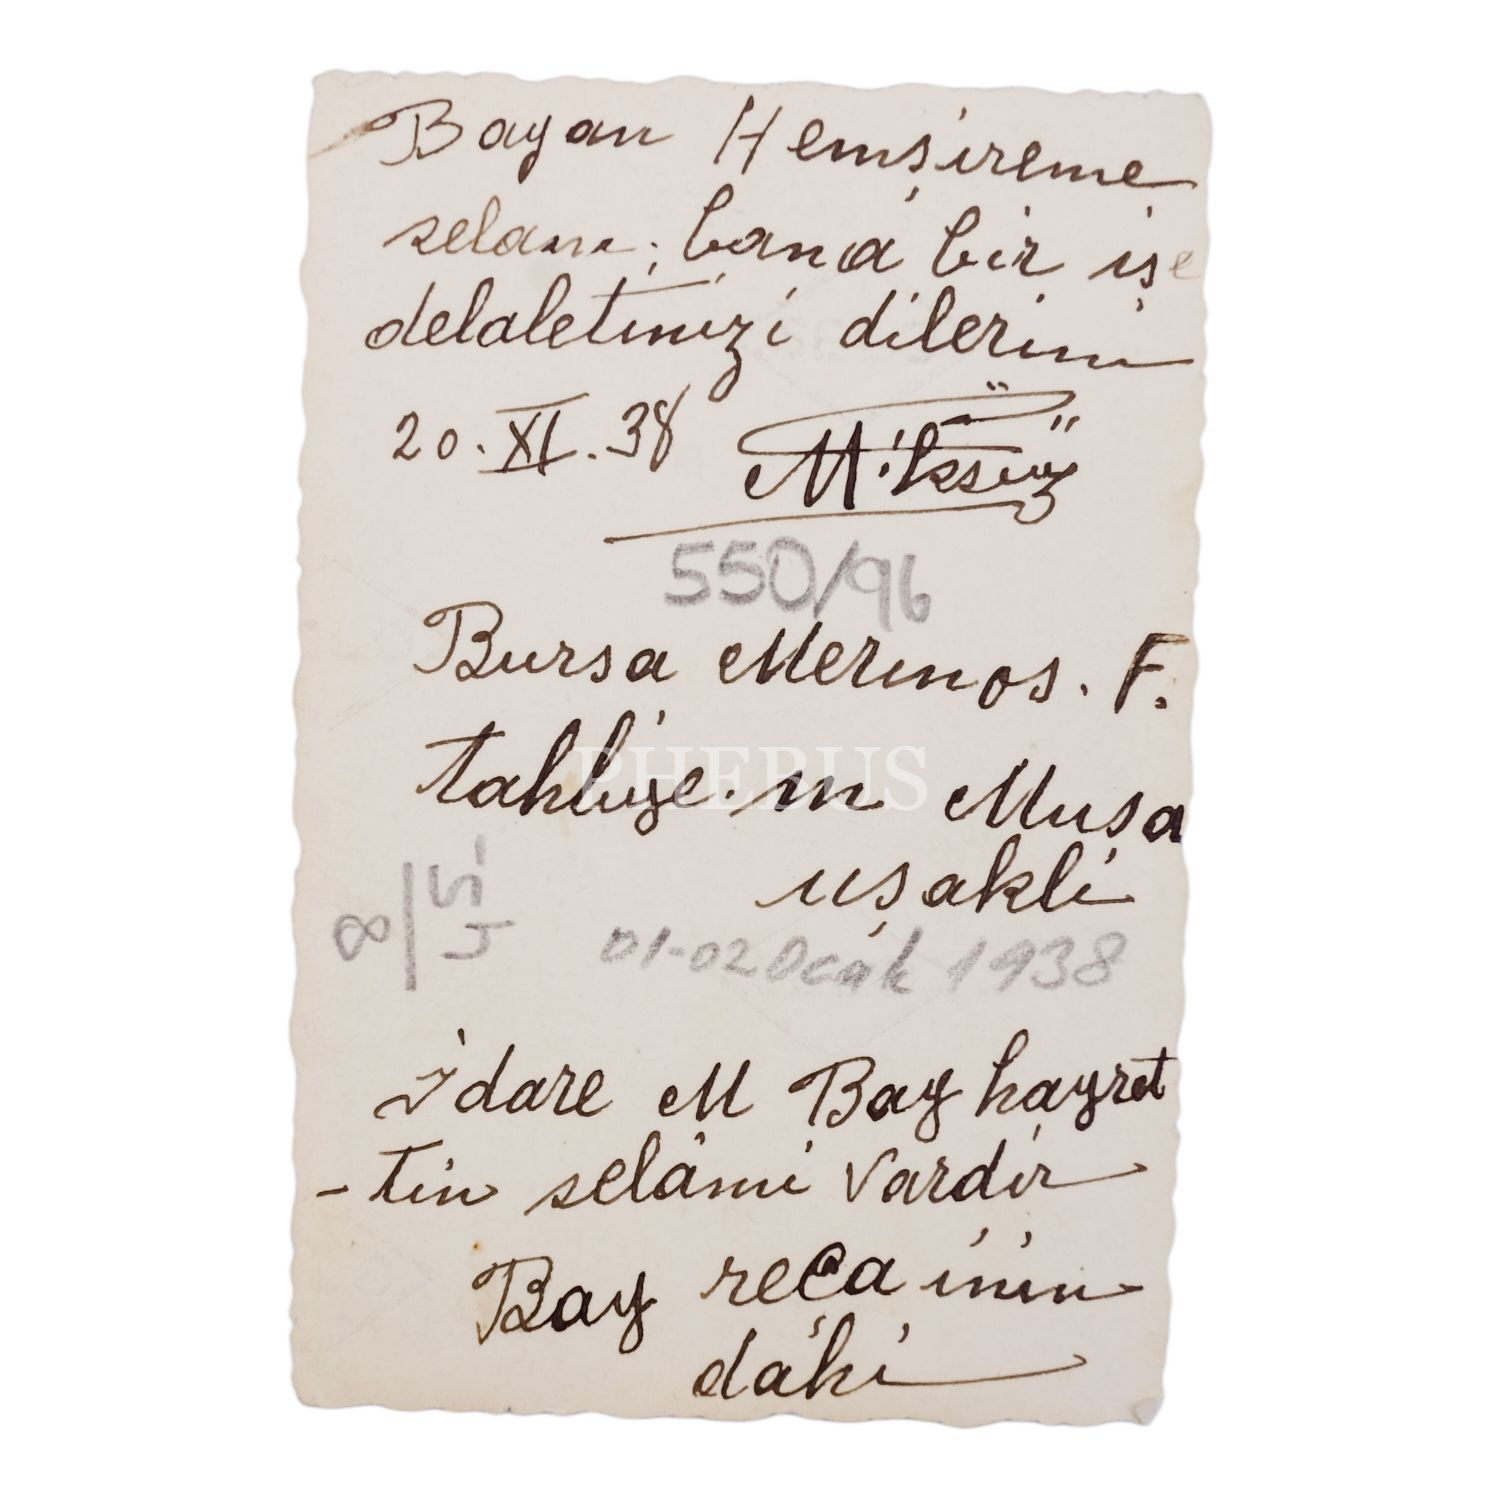 Bayan Hemşireme
selam; bana bir işe
delaletinizi dilerim
20.XI.38
550/96
Bursa Merinos. F.
tahliye. m Musa
uşakli
01-02 Ocak 1938
İdare M Bay hayret
-tin selâmi vardir
Bay recainin
dâhi
PHEBUS